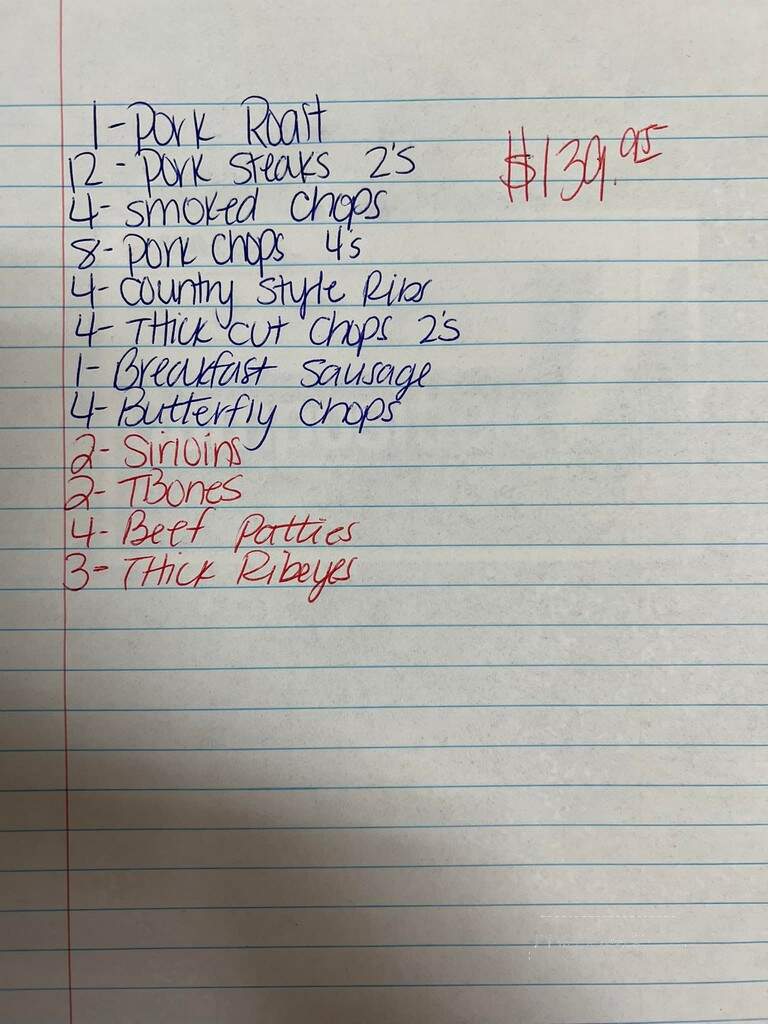 1-Pork Roast
$139.95
12-Pork Steaks 2's
4-Smoked Chops
8-Pork Chops 4's
4-Country Style Ribs
4-Thick Cut Chops 2's
1-Breakfast Sausage
4-Butterfly Chops
2-Sirloins
2-TBones
4-Beef Patties
3-Thick Ribeyes